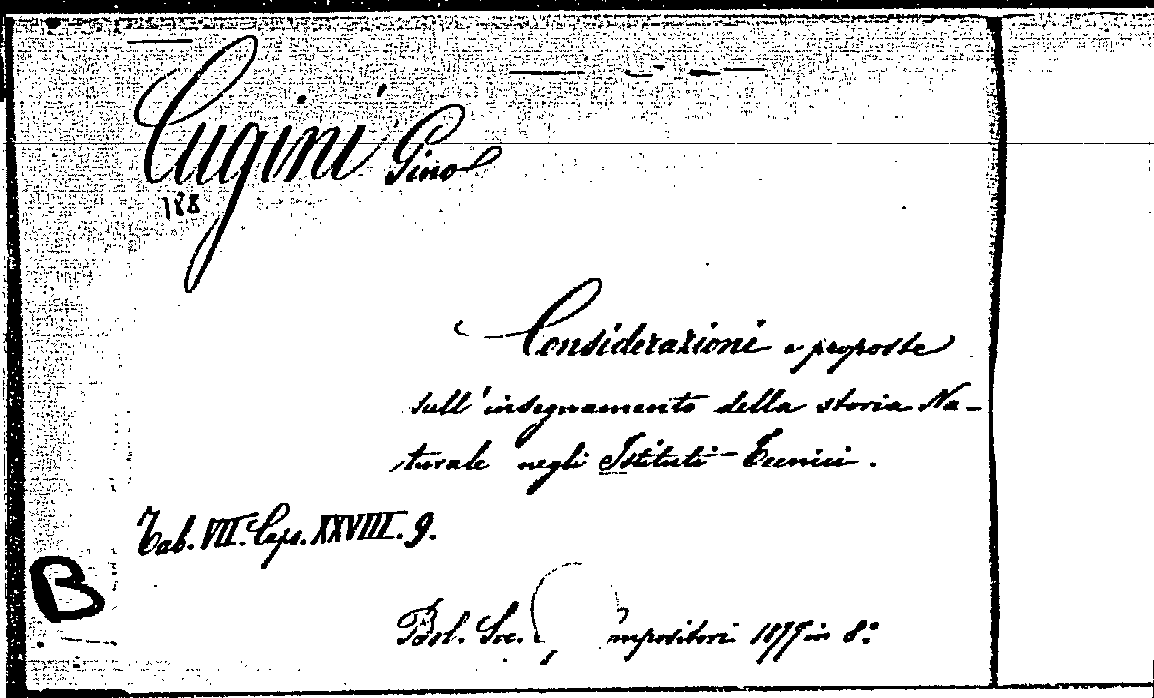 Cugini Gino
188
Considerazioni e proposte
sull'insegnamento della storia Na-
turale negli Istituti Tecnici.
Tab. VII. Caps. XXVIII. 9.
B
Bol. Soc. ompositori 1877 in 8°